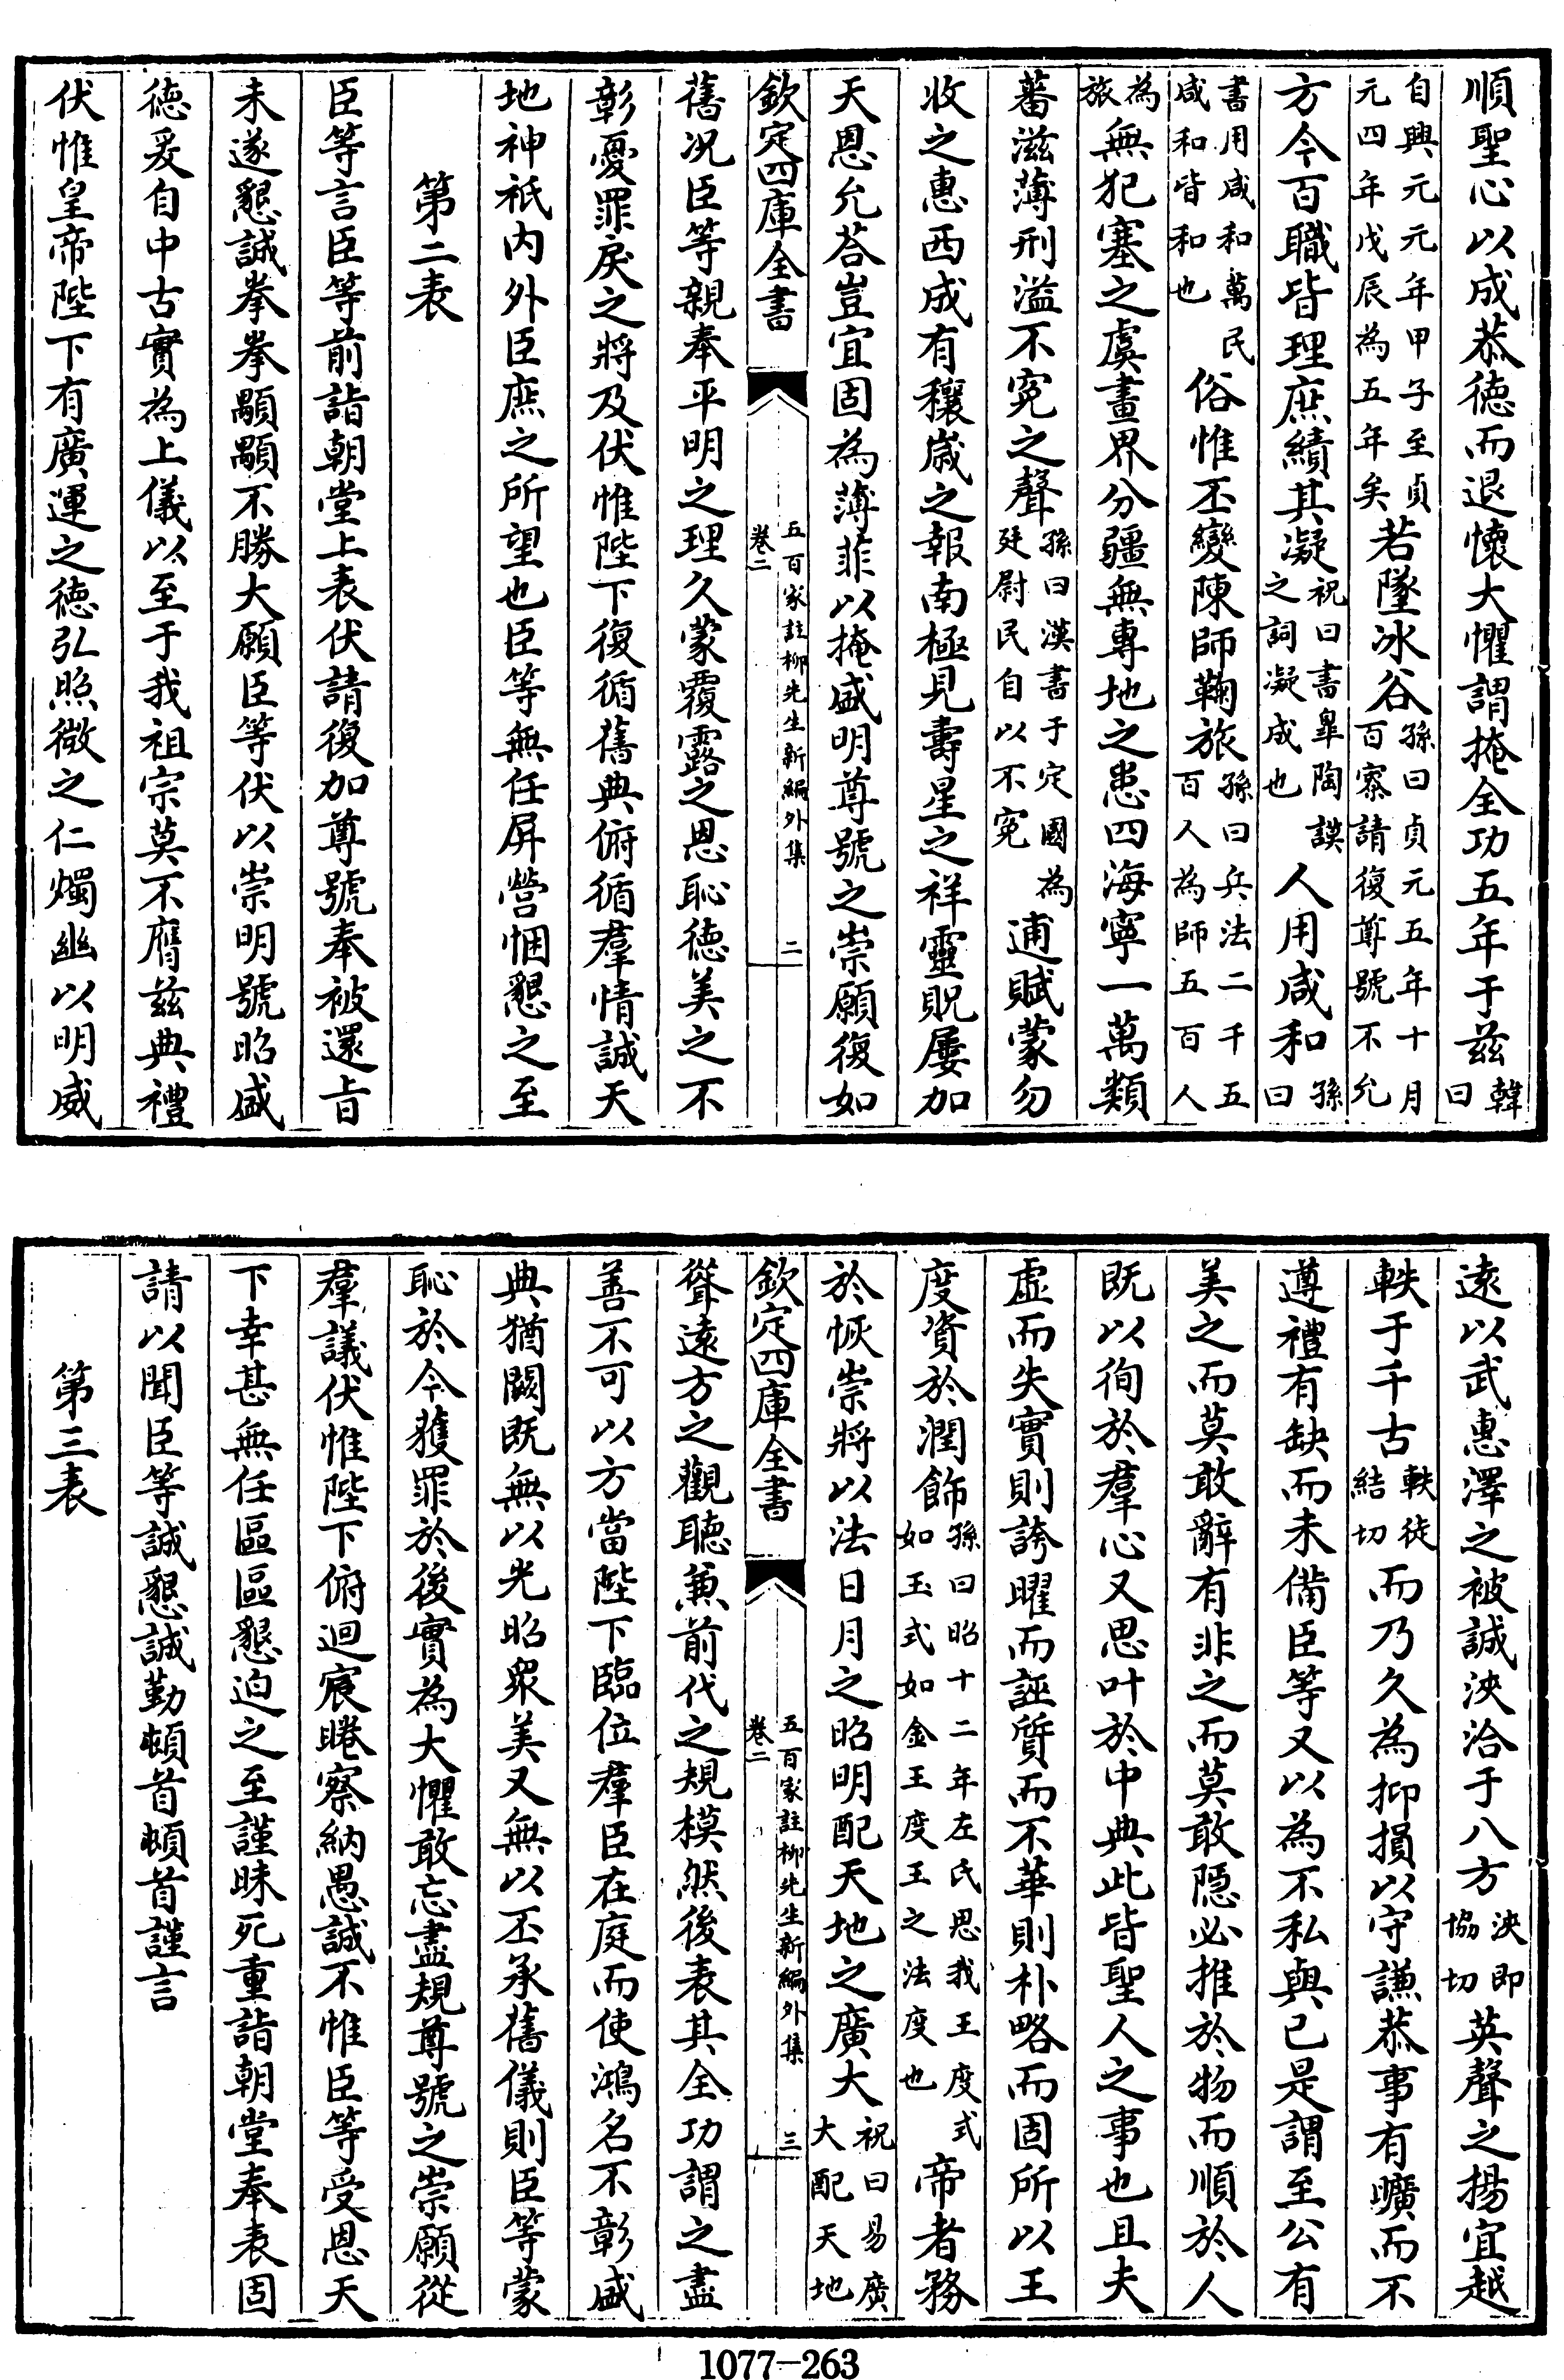 順聖心以成恭德而退懷大懼謂掩全功五年于茲韓曰
自興元元年甲子至貞元四年戊辰為五年矣若墜冰谷孫曰貞元五年十月百寮請復尊號不允
方今百職皆理庶績其凝祝曰書臯陶謨之詞凝成也人用咸和孫曰
書用咸和萬民咸和皆和也俗惟丕變陳師鞠旅孫曰兵法二千五百人為師五百人
為旅無犯塞之虞畫界分疆無專地之患四海寧一萬類
蕃滋薄刑溢不寃之聲孫曰漢書于定國為廷尉民自以不寃逋賦蒙勿
收之惠西成有穰歲之報南極見壽星之祥靈貺屢加
天恩允荅豈宜固為薄菲以掩盛明尊號之崇願復如
欽定四庫全書
五百家註柳先生新編外集
卷二
二
舊况臣等親奉平明之理久蒙覆露之恩恥德美之不
彰憂罪戾之將及伏惟陛下復循舊典俯循羣情誠天
地神祇内外臣庶之所望也臣等無任屏營悃懇之至
第二表
臣等言臣等前詣朝堂上表伏請復加尊號奉被還旨
未遂懇誠拳拳顒顒不勝大願臣等伏以崇明號昭盛
德爰自中古實為上儀以至于我祖宗莫不膺茲典禮
伏惟皇帝陛下有廣運之德弘照微之仁燭幽以明威
遠以武惠澤之被誠浹洽于八方浹即協切英聲之揚宜越
軼于千古軼徒結切而乃久為抑損以守謙恭事有曠而不
遵禮有缺而未備臣等又以為不私與己是謂至公有
美之而莫敢辭有非之而莫敢隱必推於物而順於人
既以徇於羣心又思叶於中典此皆聖人之事也且夫
虛而失實則誇曜而誣質而不華則朴略而固所以王
度資於潤飾孫曰昭十二年左氏思我王度式如玉式如金王度王之法度也帝者務
於恢崇將以法日月之昭明配天地之廣大祝曰易廣大配天地
欽定四庫全書
五百家註柳先生新編外集
卷二
三
聳遠方之觀聽兼前代之規模然後表其全功謂之盡
善不可以方當陛下臨位羣臣在庭而使鴻名不彰盛
典猶闕既無以光昭衆美又無以丕承舊儀則臣等蒙
恥於今獲罪於後實為大懼敢忘盡規尊號之崇願從
羣議伏惟陛下俯迴宸睠察納愚誠不惟臣等受恩天
下幸甚無任區區懇迫之至謹昧死重詣朝堂奉表固
請以聞臣等誠懇誠勤頓首頓首謹言
第三表
1077-263